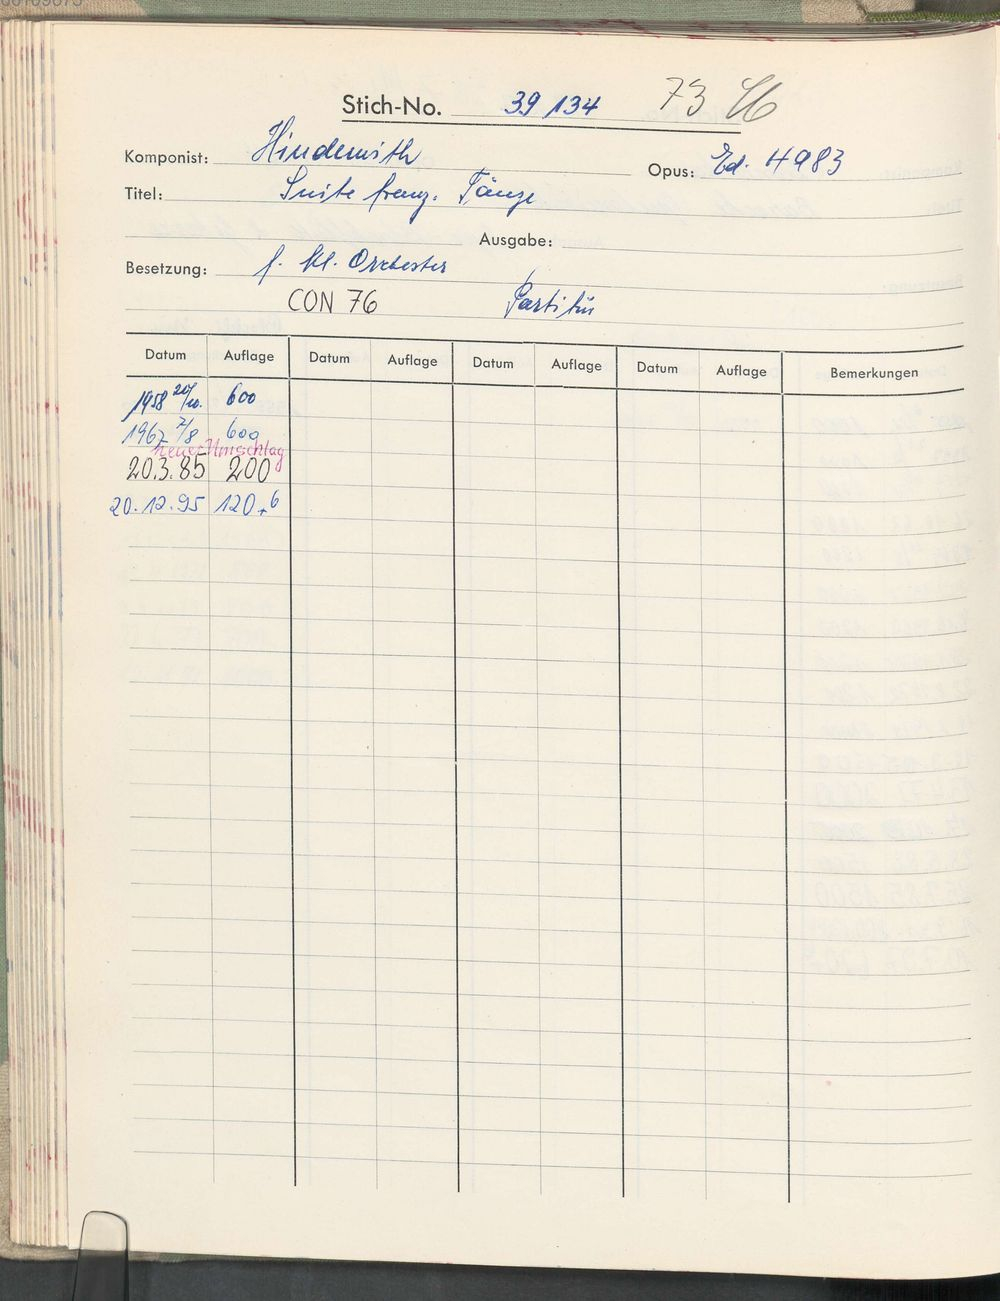 Stich-No. 39 134 73
Komponist: Hindemith Opus: Ed. 4983
Titel: Suite franz. Tänze
Ausgabe:
Besetzung: f. kl. Orchester
CON 76 Partitur
Datum Auflage Datum Auflage Datum Auflage Datum Auflage Bemerkungen
1958 20/10. 600
1967 7/8 600
neuer Umschlag
20.3.85 200
20.12.95 120+6